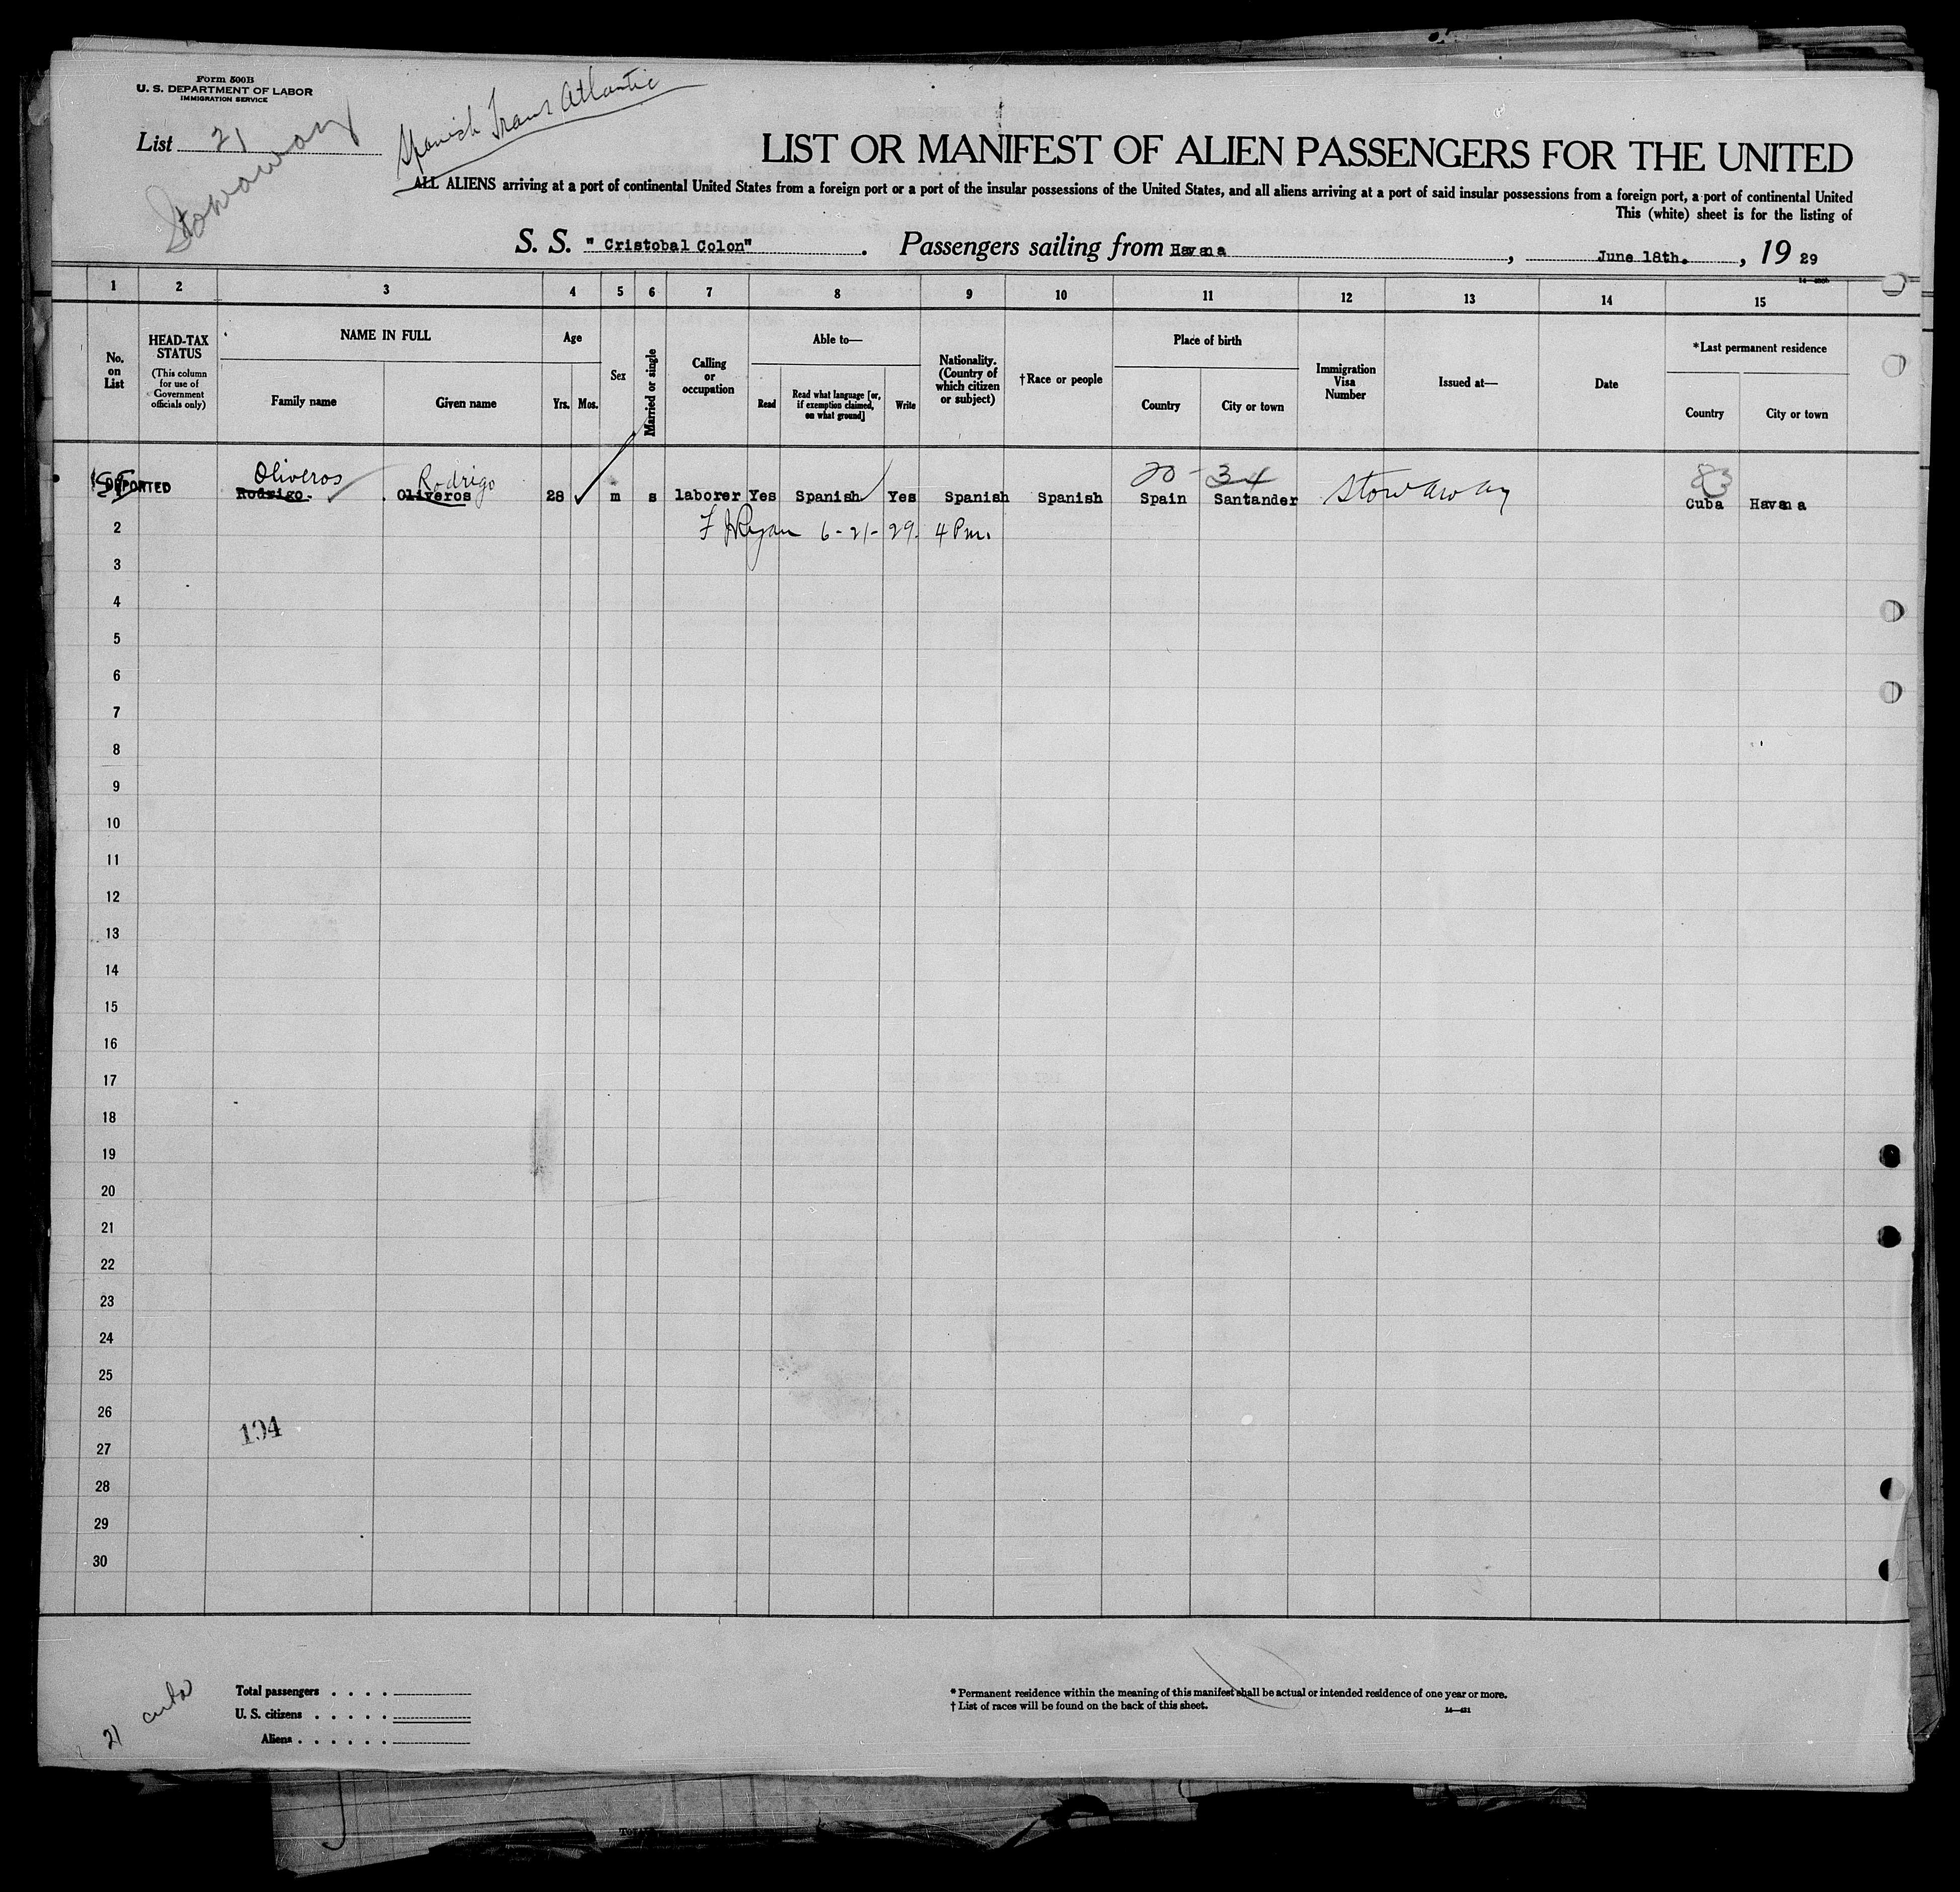 Form 500B
U. S. DEPARTMENT OF LABOR
IMMIGRATION SERVICE
List 21
Stowaway
Spanish Trans Atlantic
LIST OR MANIFEST OF ALIEN PASSENGERS FOR THE UNITED
ALL ALIENS arriving at a port of continental United States from a foreign port or a port of the insular possessions of the United States, and all aliens arriving at a port of said insular possessions from a foreign port, a port of continental United
This (white) sheet is for the listing of
S. S. "Cristobal Colon". Passengers sailing from Havana, June 18th., 1929
1 2 3 4 5 6 7 8 9 10 11 12 13 14 15
No. on List
HEAD-TAX STATUS
(This column for use of Government officials only)
NAME IN FULL
Family name Given name
Age
Yrs. Mos.
Sex
Married or single
Calling or occupation
Able to—
Read
Read what language [or, if exemption claimed, on what ground]
Write
Nationality. (Country of which citizen or subject)
†Race or people
Place of birth
Country City or town
Immigration Visa Number
Issued at—
Date
*Last permanent residence
Country City or town
Oliveros Rodrigo 20-34 83
DEPORTED Rodrigo. Oliveros 28 m s laborer Yes Spanish Yes Spanish Spanish Spain Santander Stowaway Cuba Havana
2 F J Ryan 6-21-29. 4 Pm.
3
4
5
6
7
8
9
10
11
12
13
14
15
16
17
18
19
20
21
22
23
24
25
26
194
27
28
29
30
Total passengers . . . .
U. S. citizens . . . . .
Aliens . . . . . .
21
* Permanent residence within the meaning of this manifest shall be actual or intended residence of one year or more.
† List of races will be found on the back of this sheet.
14—421